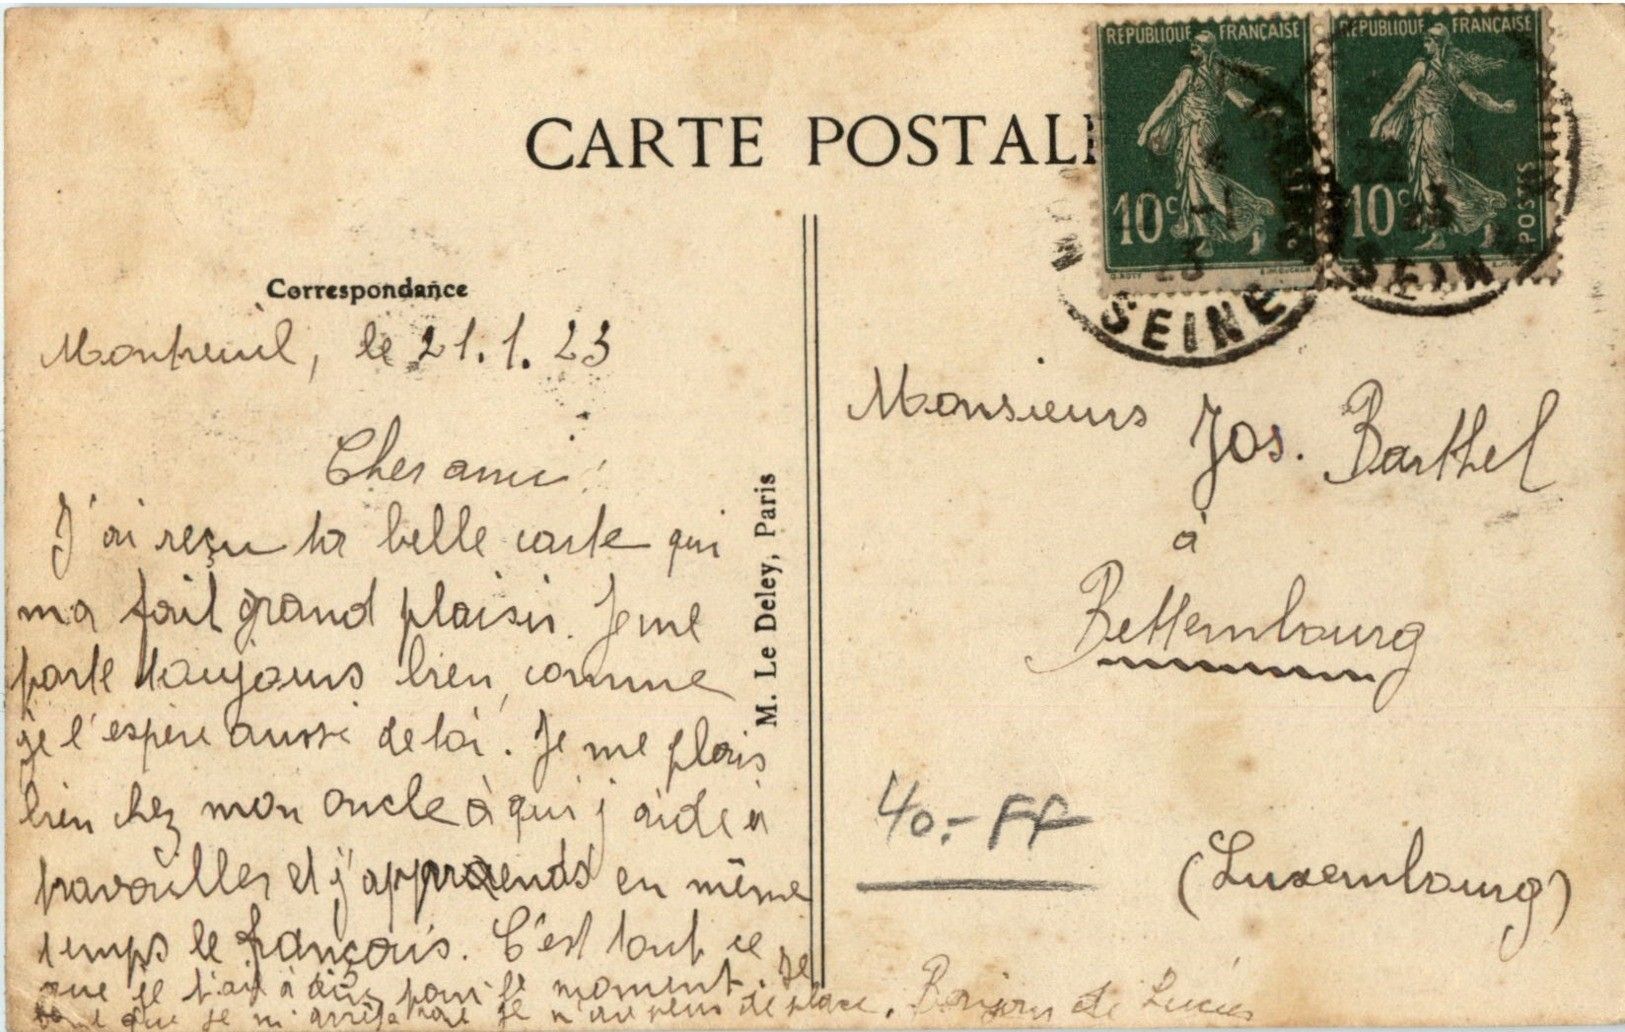 CARTE POSTALE
RÉPUBLIQUE FRANÇAISE
10c
RÉPUBLIQUE FRANÇAISE
10c
POSTES
SEINE
SEINE
Correspondance
Montreuil, le 21.1.23
Cher ami!
J'ai reçu ta belle carte qui
ma fait grand plaisir. Je me
porte toujours bien, comme
je l'espère aussi de toi. Je me plais
bien chez mon oncle à qui j'aide à
travailler et j'apprends en même
temps le français. C'est tout ce
que je t'ai à dire pour le moment. Je
que je m'arrête je n'ai plus de place. Bonjour de Lucien
M. Le Deley, Paris
Monsieurs Jos. Barthel
à
Bettembourg
40.- FF
(Luxembourg)